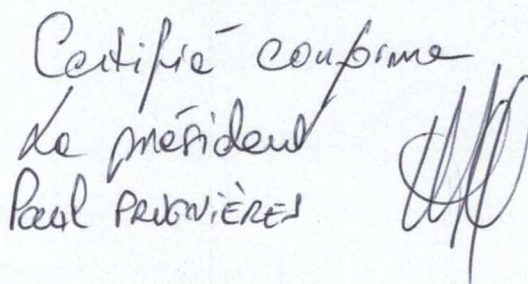 Certifié conforme
Le président
Paul PRUGNIÈRES